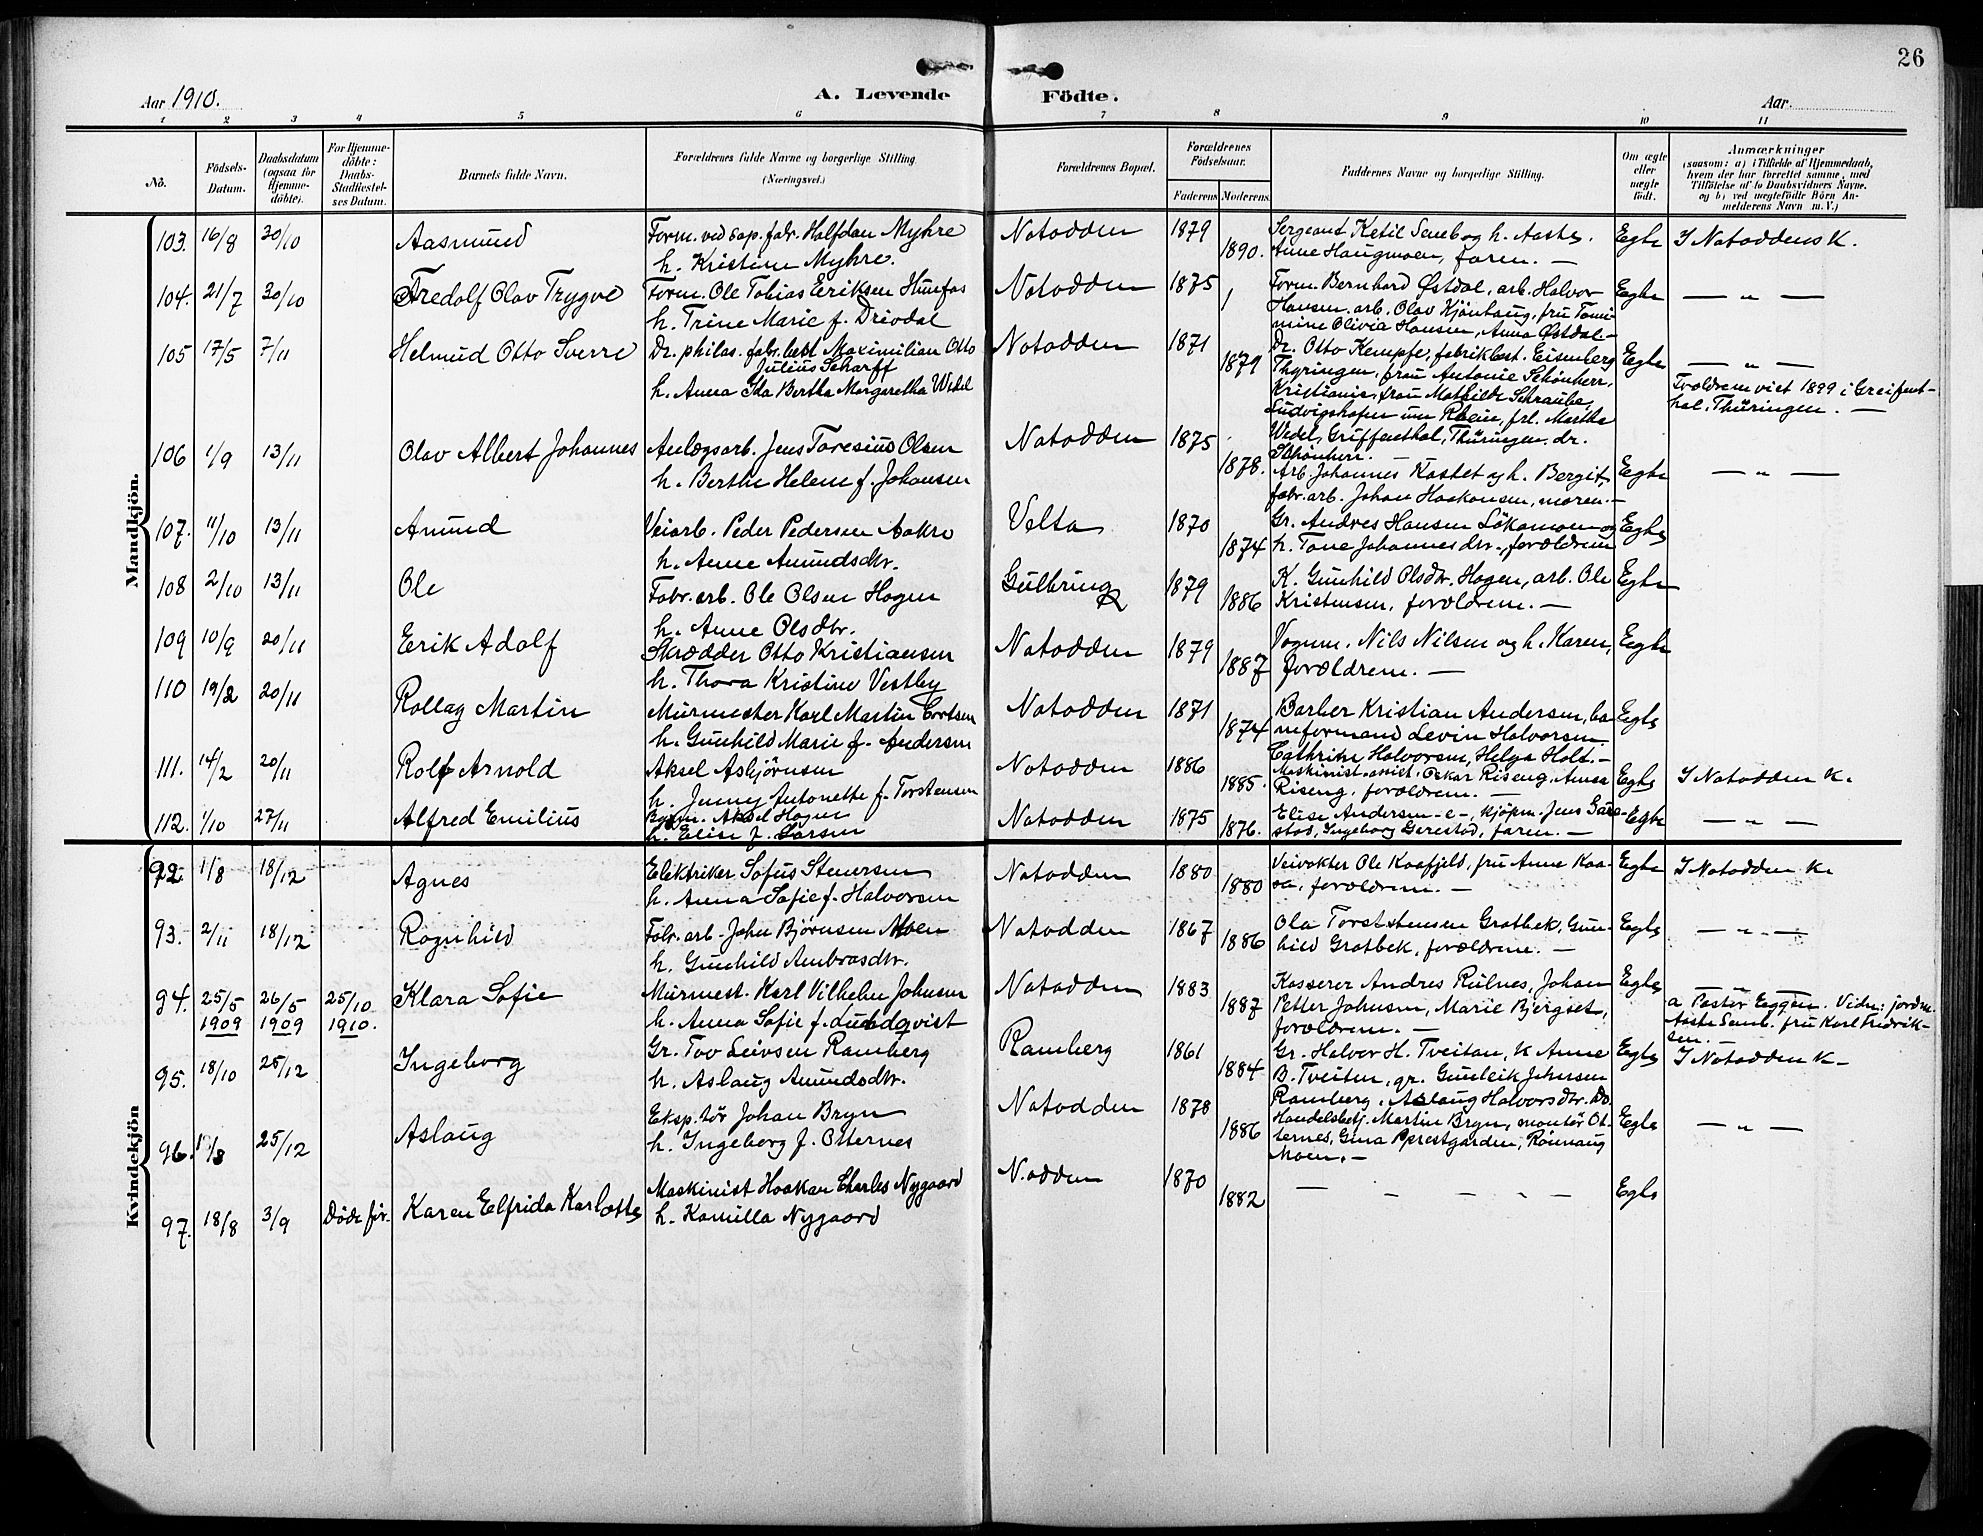 26
Aar 1910.
A. Levende Födte.
Aar.
1 2 3 4 5 6 7 8 9 10 11
No.
Födsels-Datum.
Daabsdatum (ogsaa for Hjemme-döbte).
For Hjemme-döbte: Daabs-Stadfæstelses Datum.
Barnets fulde Navn.
Forældrenes fulde Navne og borgerlige Stilling. (Næringsvei.)
Forældrenes Bopæl.
Forældrenes Födselsaar.
Faderens Moderens
Faddernes Navne og borgerlige Stilling.
Om ægte eller uægte födt.
Anmærkninger
(saasom: a) i Tilfælde af Hjemmedaab,
hvem der har forrettet samme, med
Tilföielse af to Daabsvidners Navne,
og b) ved uægtefödte Börn An-
melderens Navn m. V.)
Mandkjön.
103. 16/8 30/10 Aasmund Form. ved sap. fabr. Halfdan Myhre Notodden 1879 Sergeant Ketil Semb og h. Aaste, Egte I Notoddens K.
h. Kristine Myhre. 1890. Anne Haugmoen, faren. —
104. 21/7 30/10 Fredolf Olav Trygve Form. Ole Tobias Eriksen Hunfos Notodden 1875 Form Bernhard Østdal, arb. Halvor Egte — „ —
h. Trine Marie f. Driodal Hansen, arb. Olav Kjöntaug, fru Tomi-
mine Olivia Hansen, Anna Østdal.—
105 17/5 7/11 Helmud Otto Sverre Dr. philos. fabr. best Maximilian Otto Notodden 1871 Dr. Otto Kempfe, fabrikbest. Eisenberg Egte — „ —
Julius Scharff 1879 Thyringen, frau Antonie Schönherr,
h. Anna Ida Bertha Margaretha Wedel Kristiania, frau Mathilde Schraube, Forældrene viet 1899 i Greifent-
Ludvigshafen um Rhein, frl. Martha hal, Thüringen. —
Wedel, Griffenthal, Thüringen, dr.
Schönherr. —
106 1/9 13/11 Olav Albert Johannes Anlægsarb. Jens Toresius Olsen Notodden 1875 Arb. Johannes Kastet og h. Bergit, Egte — „ —
h. Berthe Helene f. Johansen 1878. fabr. arb. Johan Haakonsen, moren.—
107. 11/10 13/11 Amund Veiarb. Peder Pedersen Aakre Velta 1870 Gr. Andres Hansen Lökamoen og Egte
h. Anne Amundsdtr. 1874 h. Tone Johannesdtr., forældrene
108 2/10 13/11 Ole Fabr. arb. Ole Olsen Hagen Gulbring 1879 K. Gunhild Olsdtr. Hagen, arb. Ole Egte
h. Anne Olsdtr. 1886 Kristensen, forældrene. —
109 10/9 20/11 Erik Adolf Skrædder Otto Kristiansen Notodden 1879 Vognm. Nils Nilsen og h. Karen, Egte
h. Thora Kristine Vestby 1887 forældrene. —
110 19/2 20/11 Rollag Martin Murmester Karl Martin Evertsen Notodden 1871 Barber Kristian Andersen, ba- Egte
h. Gunhild Marie f. Andersen 1874 neformand Levin Halvorsen
Cathrine Halvorsen, Helga Holt.—
111. 14/2 20/11 Rolf Arnold Aksel Asbjörnsen Notodden 1886 Maskinist. assist. Oskar Riseng, Anna Egte I Notodden K.
h. Jenny Antonette f. Torstensen 1885. Riseng, forældrene. —
112. 1/10 27/11 Alfred Emilius Bygm. Aksel Hagen Notodden 1875 Elise Andersen –e–, kjöpm. Jens Gare- Egte — „ —
h. Elise f. Larsen 1876. stad, Ingeborg Gerestad, faren. —
Kvindekjön
92. 1/8 18/12 Agnes Elektriker Sofus Stenersen Notodden 1880 Veivokter Ole Kaafjeld, fru Anne Kaa- Egte I Notodden K.
h. Anna Sofie f. Halvorsen 1880 sa, forældrene. —
93. 2/11 18/12 Ragnhild Fabr. arb. John Björnsen Moen Notodden 1867 Ola Torstensen Grotbek, Gun- Egte — „ —
h. Gunhild Ambrosdtr. 1886 hild Grotbek, forældrene. —
94. 25/5 1909 26/5 1909 25/10 1910. Klara Sofie Murmest. Karl Vilhelm Johnsen Notodden 1883 Kasserer Andres Rulnes, Johan Egte — „ —
h. Anna Sofie f. Lundqvist 1887 Petter Johnsen, Marie Bjerget, a Pastor Eggen. Vidn: jordm.
forældrene. — Aaste Semb. fru Karl Fredrik-
sen.
95. 18/10 25/12 Ingeborg Gr. Tov Leivsen Ramberg Ramberg 1861 Gr. Halvor H. Tveitan, K Anne Egte I Notodden K—
h. Aslaug Amundsdtr. 1884 B. Tveiten, gr. Gunleik Johnsen
Ramberg, Aslaug Halvorsdtr. Do.
96. 25/12 Aslaug Eksp.tör Johan Bryn Notodden 1878 Handelsbetj. Martin Bryn, montör Ot- Egte — „ —
h. Ingeborg f. Otternes 1886 ternes, Gina Prestgarden, Rönnaug
Moen.—
97. 18/8 3/9 Döde för. Karen Elfrida Karlotte Maskinist Haakan Charles Nygaard N.odden 1870 — – – „ – — Egte
h. Kamilla Nygaard 1882